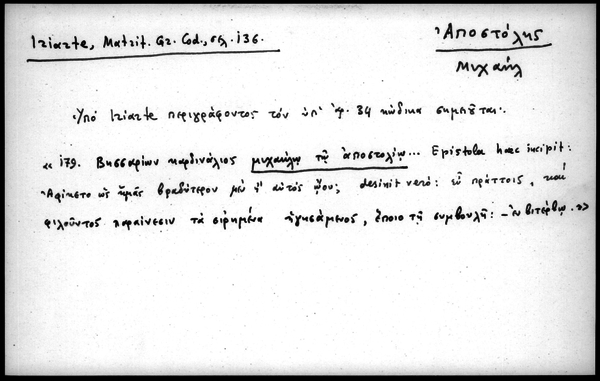 Iriarte, Matrit. Gr. Cod., σελ. 136.
Ἀποστόλης
Μιχαήλ
Ὑπό Iriarte περιγράφοντος τόν ὑπ' ἀρ. 34 κώδικα σημειοῦται·
« 179. Βησσαρίων καρδινάλιος μιχαήλῳ τῷ ἀποστολίῳ... Epistola haec incipit:
Ἀφίκετο ὡς ἡμᾶς βραδύτερον μὲν ἤ αὐτὸς ᾤου; desinit verò: εὖ πράττοις, καί
φιλοῦντος παραίνεσιν τὰ εἰρημένα ἡγησάμενος, ἕποιο τῇ συμβουλῇ: – ἐν βιτέρβῳ. »